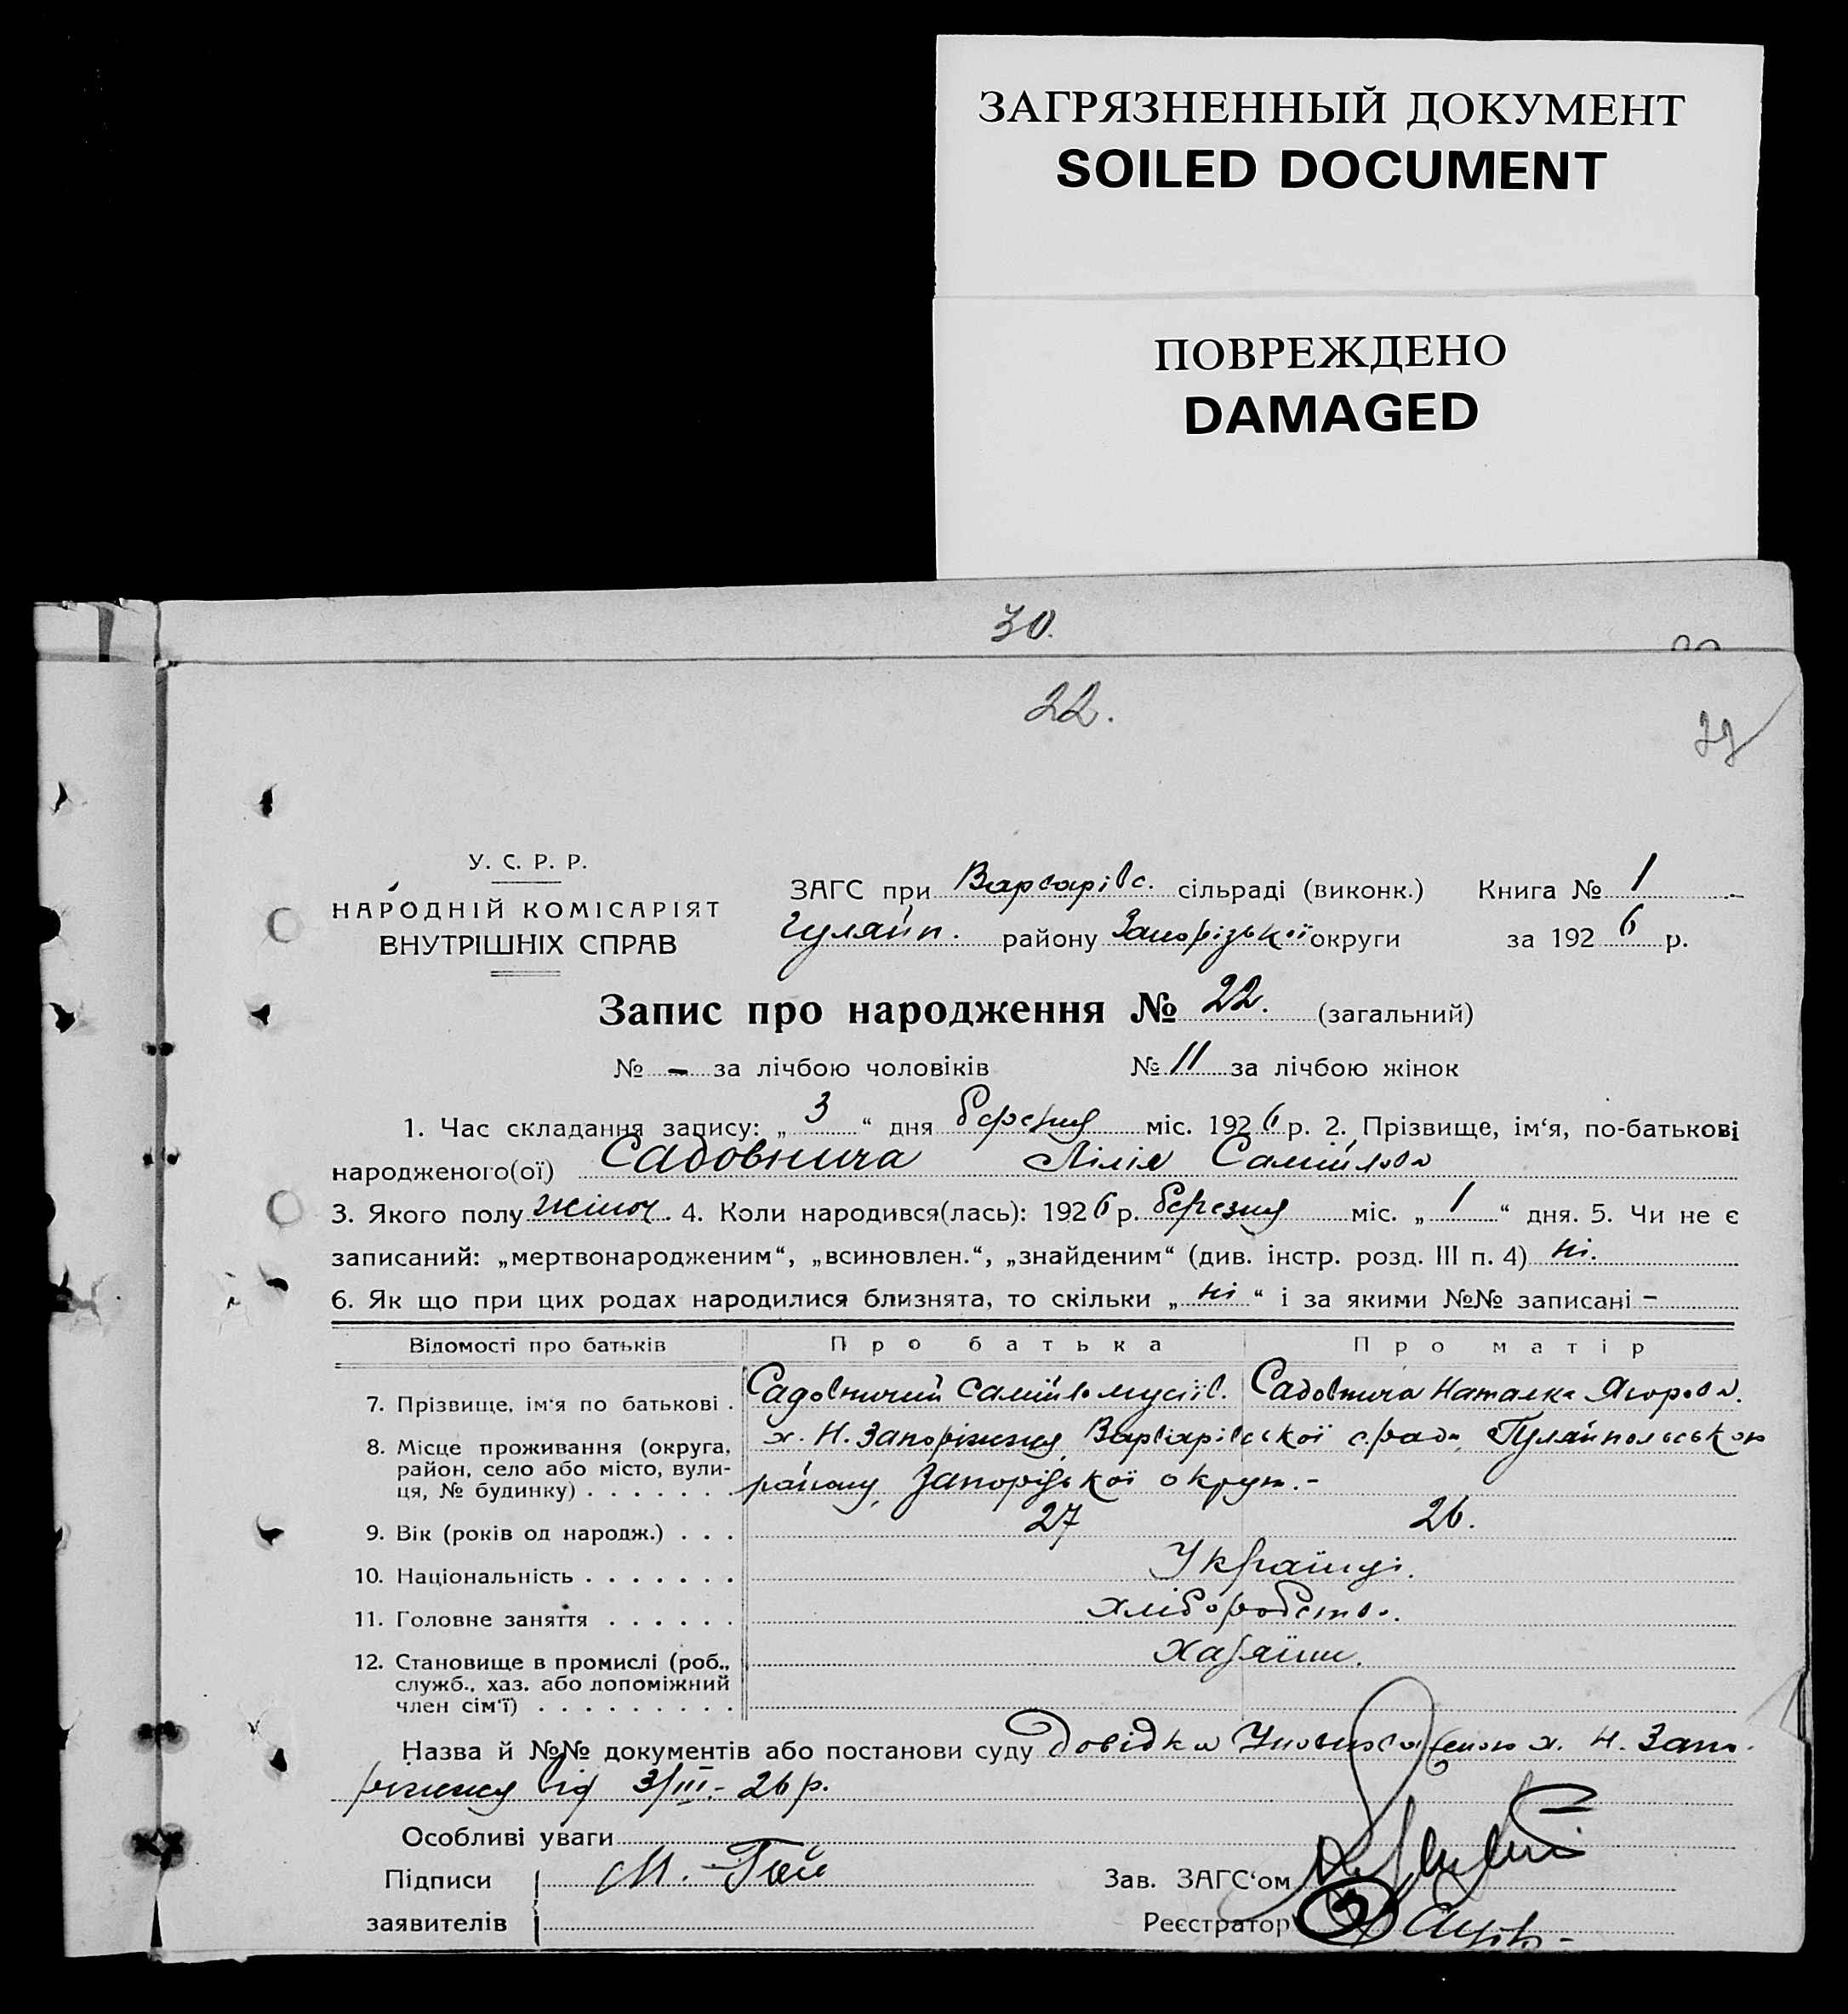 ЗАГРЯЗНЕННЫЙ ДОКУМЕНТ
SOILED DOCUMENT
ПОВРЕЖДЕНО
DAMAGED
30.
22.
У. С. Р. Р.
НАРОДНІЙ КОМІСАРІЯТ
ВНУТРІШНІХ СПРАВ
ЗАГС при Варварівс. сільраді (виконк.) Книга № 1
Гуляйп. району Запорізької округи за 1926 р.
Запис про народження № 22. (загальний)
№ - за лічбою чоловіків № 11 за лічбою жінок
1. Час складання запису: „ 3 “ дня березня міс. 1926 р. 2. Прізвище, ім‘я, по-батькові
народженого(ої) Садовнича Лілія Самійлова
3. Якого полу жіноч. 4. Коли народився(лась): 1926 р. березня міс. „ 1 “ дня. 5. Чи не є
записаний: „мертвонародженим“, „всиновлен.“, „знайденим“ (див. інстр. розд. III п. 4) ні.
6. Як що при цих родах народилися близнята, то скільки „ ні “ і за якими №№ записані -
Відомості про батьків Про батька Про матір
7. Прізвище, ім‘я по батькові . Садовничий Самійло Мусіїв. Садовнича Наталка Ягорова.
8. Місце проживання (округа, х. Н. Запоріжжя, Варварівської с/ради, Гуляйпольського
район, село або місто, вули- району, Запорізької округи.-
ця, № будинку) . . . . . . .
9. Вік (років од народж.) . . . 27 26.
10. Національність . . . . . . . Українці.
11. Головне заняття . . . . . . хліборобство.
12. Становище в промислі (роб., Хазяїни.
служб., хаз. або допоміжний
член сім‘ї) . . . . . . . . .
Назва й №№ документів або постанови суду Довідка Уповноваженого х. Н. Запо-
ріжжя від 3/III.- 26 р.
Особливі уваги
Підписи М. Гай Зав. ЗАГС‘ом
заявителів Реєстратор